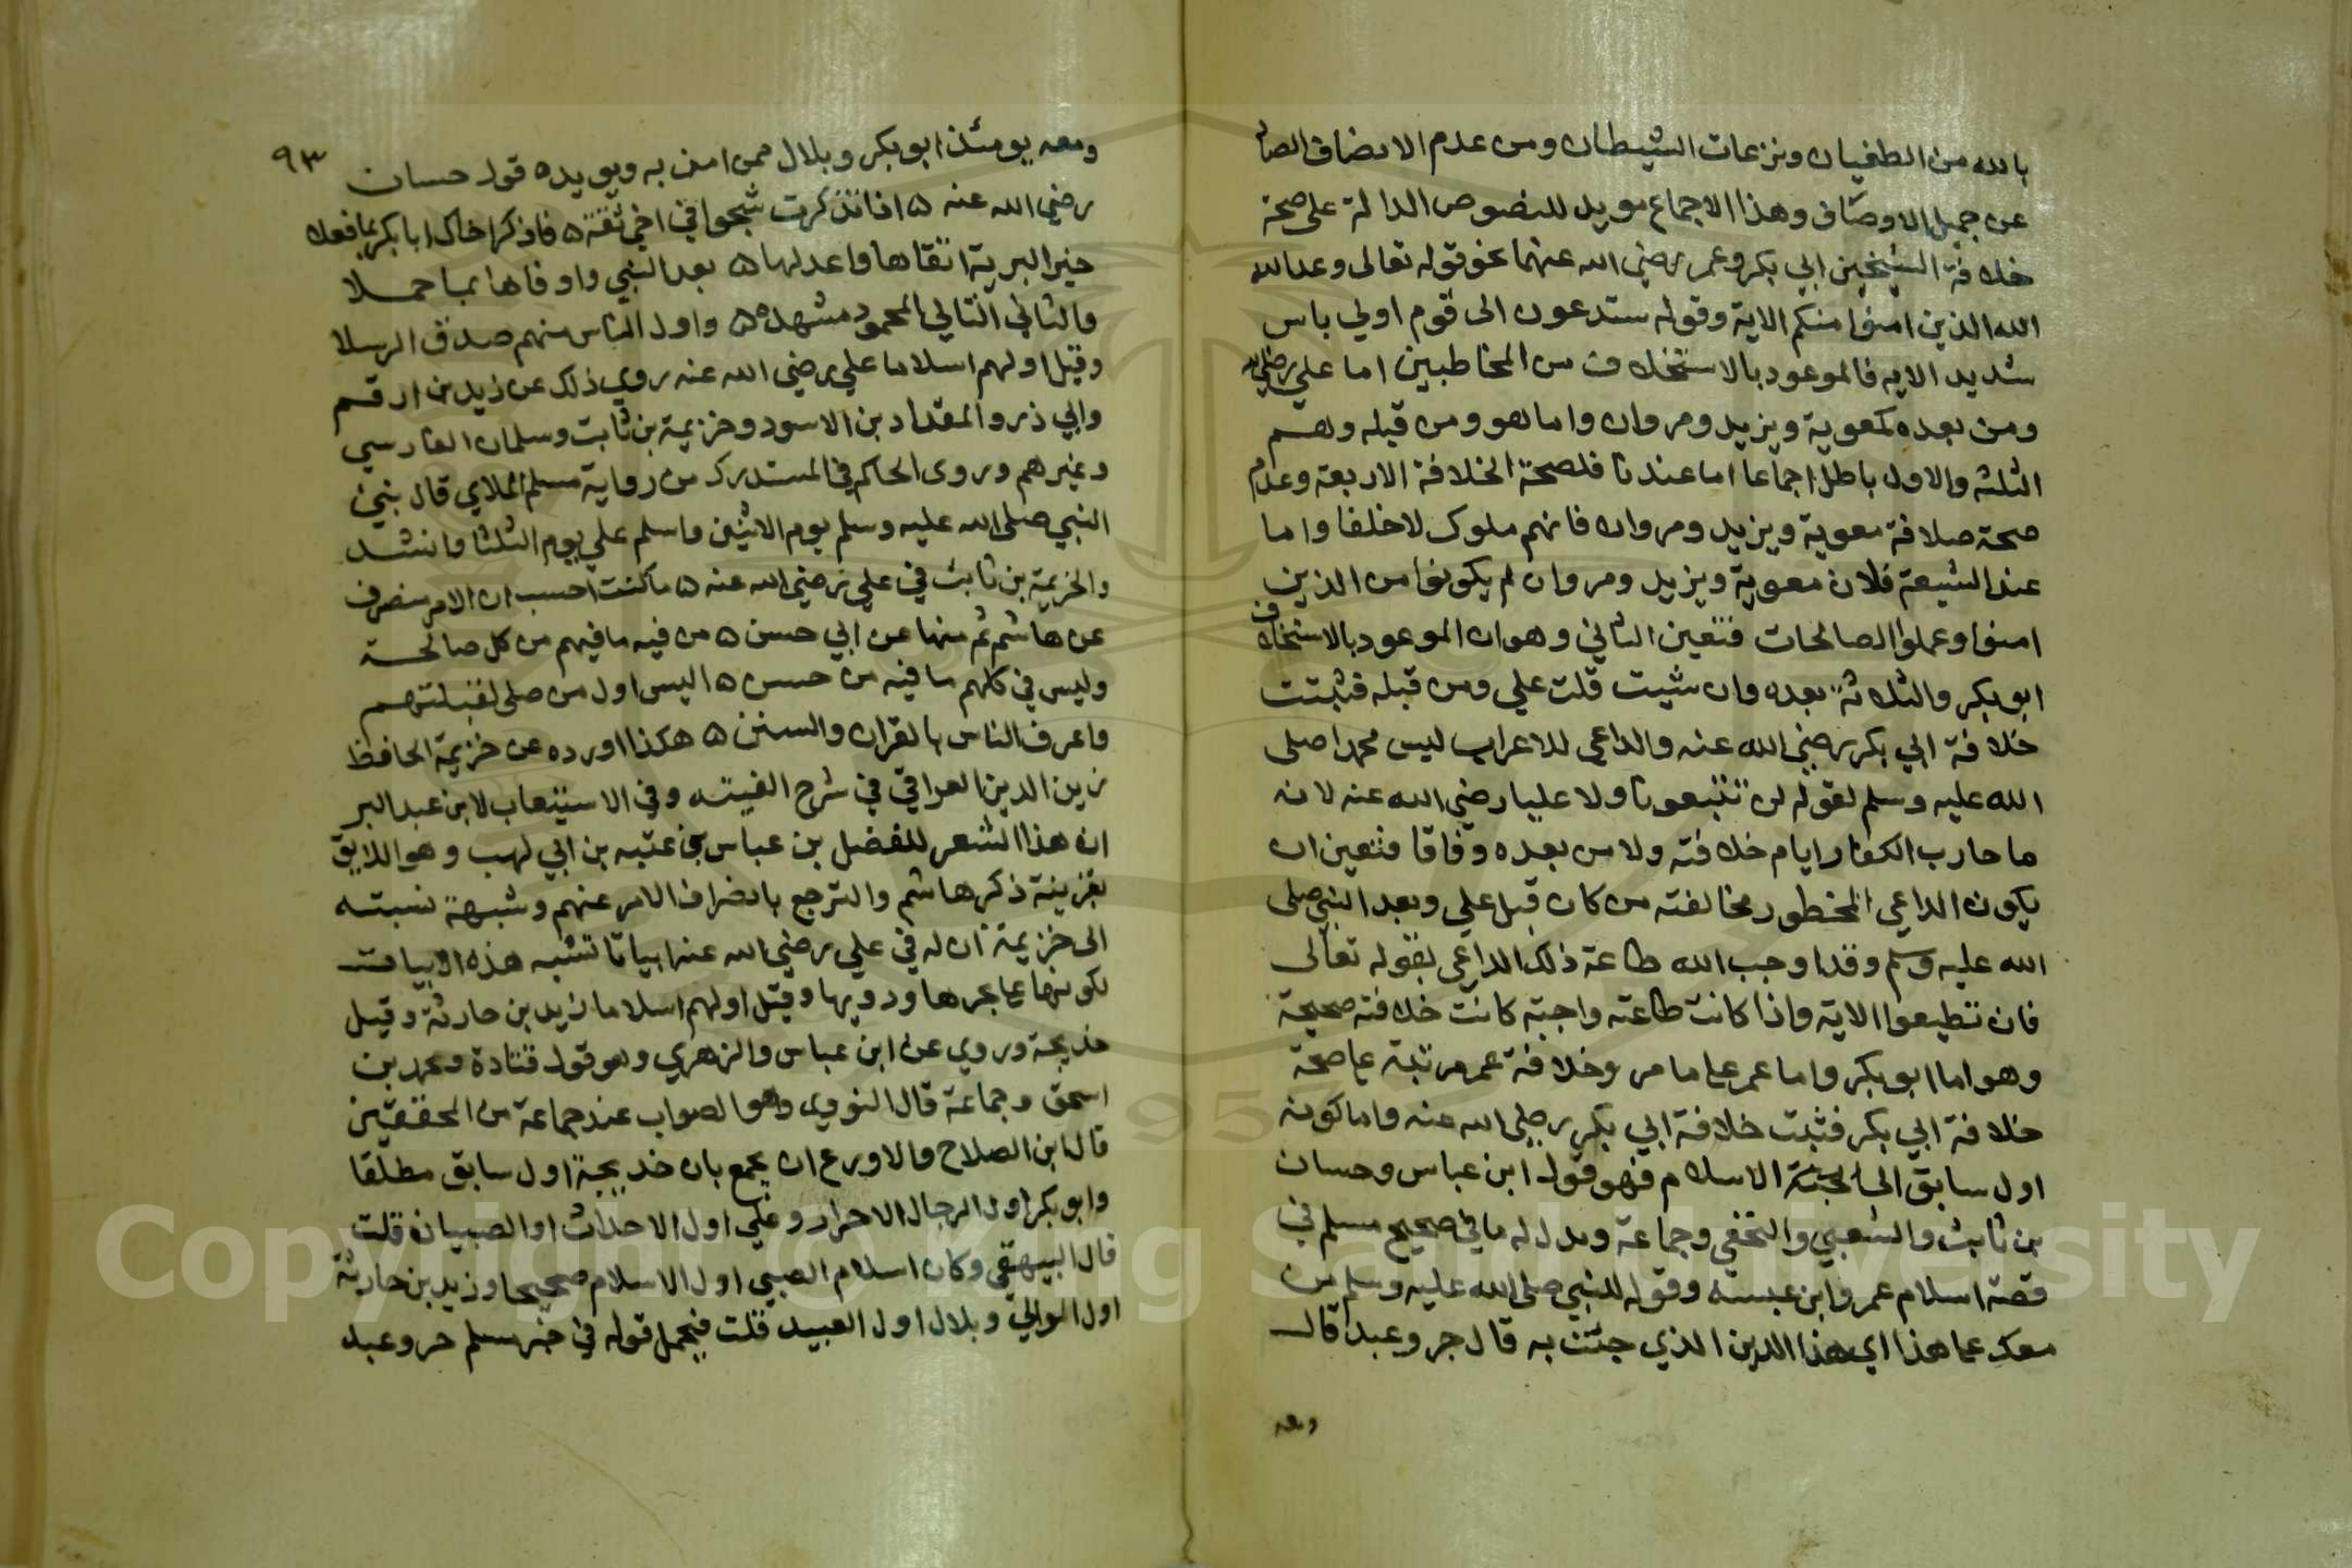 بالله من الطغيان ونزعات الشيطان ومن عدم الانصاف الصا
عن جميل الاوصاف وهذا الاجماع مويد للنصوص الدالة على صحة
خلافة الشيخين ابي بكر وعمر رضي الله عنهما نحو قوله تعالى وعد الله
الله الذين امنوا منكم الاية وقوله ستدعون الى قوم اولي باس
شديد الايه فالموعود بالاستخلاف من المخاطبين اما علي رضي الله
ومن بعده كمعوية ويزيد ومروان واما هو ومن قبله وهم
الثلثه والاول باطل اجماعا اما عندنا فلصحة الخلافة الاربعة وعدم
صحة صلافة معوية ويزيد ومروان فانهم ملوك لا خلفا واما
عند الشيعة فلان معوية ويزيد ومروان لم يكونوا من الذين
امنوا وعملوا الصالحات فتعين الثاني وهوان الموعود بالاستخلاف
ابو بكر والثلاثة بعده وان شيت قلت علي ومن قبله فثبتت
خلافة ابي بكر رضي الله عنه والداعي للاعراب ليس محمدا صلى
الله عليه وسلم لقوله لن تتبعونا ولا عليا رضي الله عنه لانه
ما حارب الكفار ايام خلافته ولا من بعده وفاقا فتعين ان
يكون الداعي المحظور مخالفته من كان قبل علي وبعد النبي صلى
الله عليه وسلم وقد اوجب الله طاعة ذلك الداعي بقوله تعالى
فان تطيعوا الاية واذا كانت طاعته واجبة كانت خلافته صحيحة
وهو اما ابو بكر واما عمر علي ما مر وخلافة عمر مرتبة علي صحة
خلافة ابي بكر فثبت خلافة ابي بكر رضي الله عنه واما كونه
اول سابق الى الاسلام فهو قول ابن عباس وحسان
بن ثابت والشعبي والنخعي وجماعة ويدل له ما في صحيح مسلم في
قصة اسلام عمرو ابن عبسه وقوله للنبي صلى الله عليه وسلم من
معك على هذا اي هذا الدين الذي جئت به قال حر وعبد قال
ومعه
٩٣
ومعه يومئذ ابو بكر وبلال ممن امن به ويويده قول حسان
رضي الله عنه ه اذا تذكرت شجوا في اخي ثقة ه فاذكر اخاك ابا بكر بما فعلا
خير البرية اتقاها واعدلها ه بعد النبي واوفاها بما حملا
والثاني التالي المحمود مشهده ه واول الناس منهم صدق الرسلا
وقيل اولهم اسلاما علي رضي الله عنه روي ذلك عن زيد بن ارقم
وابي ذر والمقداد بن الاسود وخزيمة بن ثابت وسلمان الفارسي
وغيرهم وروى الحاكم في المستدرك من رواية مسلم الملاي قال بني
النبي صلى الله عليه وسلم يوم الاثنين واسلم علي يوم الثلثا وانشد
والخزيمة بن ثابت في علي رضي الله عنه ه ما كنت احسب ان الامر منصرف
عن هاشم ثم منها عن ابي حسن ه من فيه ما فيهم من كل صالحة
وليس في كلهم ما فيه من حسن ه اليس اول من صلى لقبلتهم
واعرف الناس بالقران والسنن ه هكذا اورده عن خزيمة الحافظ
زين الدين العراقي في شرح الفيته وفي الاستيعاب لابن عبد البر
ان هذا الشعر للفضل بن عباس بن عتبه بن ابي لهب وهو اللايق
بقرينة ذكر هاشم والترجع بانصراف الامر عنهم وشبهة نسبته
الى خزيمة ان له في علي رضي الله عنه ابياتا تشبه هذه الابيات
لكونها على بحرها ورويها وقيل اولهم اسلاما زيد بن حارثة وقيل
خديجة وروي عن ابن عباس والزهري وهو قول قتادة ومحمد بن
اسحق وجماعة قال النووي وهو الصواب عند جماعة من المحققين
قال ابن الصلاح والاورع ان يجمع بان خديجة اول سابق مطلقا
وابو بكر اول الرجال الاحرار وعلي اول الاحداث او الصبيان قلت
قال البيهقي وكان اسلام الصبي اول الاسلام صحيحا وزيد بن حارثة
اول الموالي وبلال اول العبيد قلت فيحمل قوله في خبر مسلم حر وعبد
Copyright © King Saud University